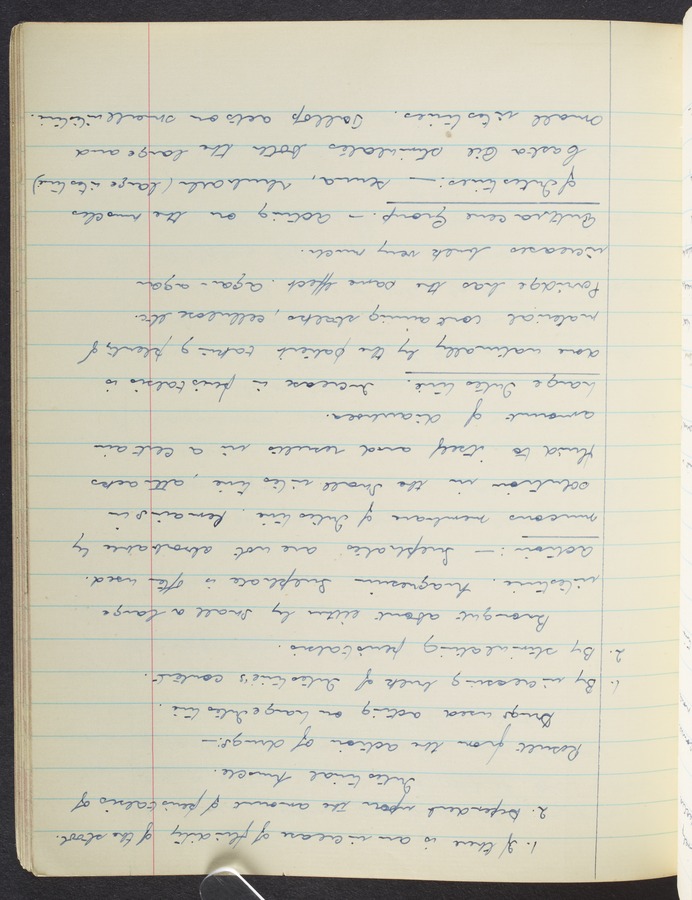 1. If there is an increase of fluidity of the stool.
2. Dependent upon the amount of peristalsis of
Intestinal muscle.
Result from the action of drugs:—
Drugs used acting on Large Intestine.
1. By increasing bulk of Intestine's content.
2. By stimulating peristalsis.
Brought about either by small a large
intestine. Magnesium Sulphate is often used.
Action :— Sulphates are not absorbable by
mucous membrane of Intestine. Remains in
solution in the small intestine, attracts
fluid to itself and results in a certain
amount of diarrhoea.
Large Intestine. Increase in peristalsis is
done naturally by the patient taking plenty of
material containing stalks, cellulose etc.
Porridge has the same effect. Agar-agar
increases bulk very much.
Anthracene Group. — Acting on the muscles
of Intestines :— Senna, Rhubarb (large intestine)
Castor Oil stimulates both the large and
small intestines. Jallop acts on small intestine.